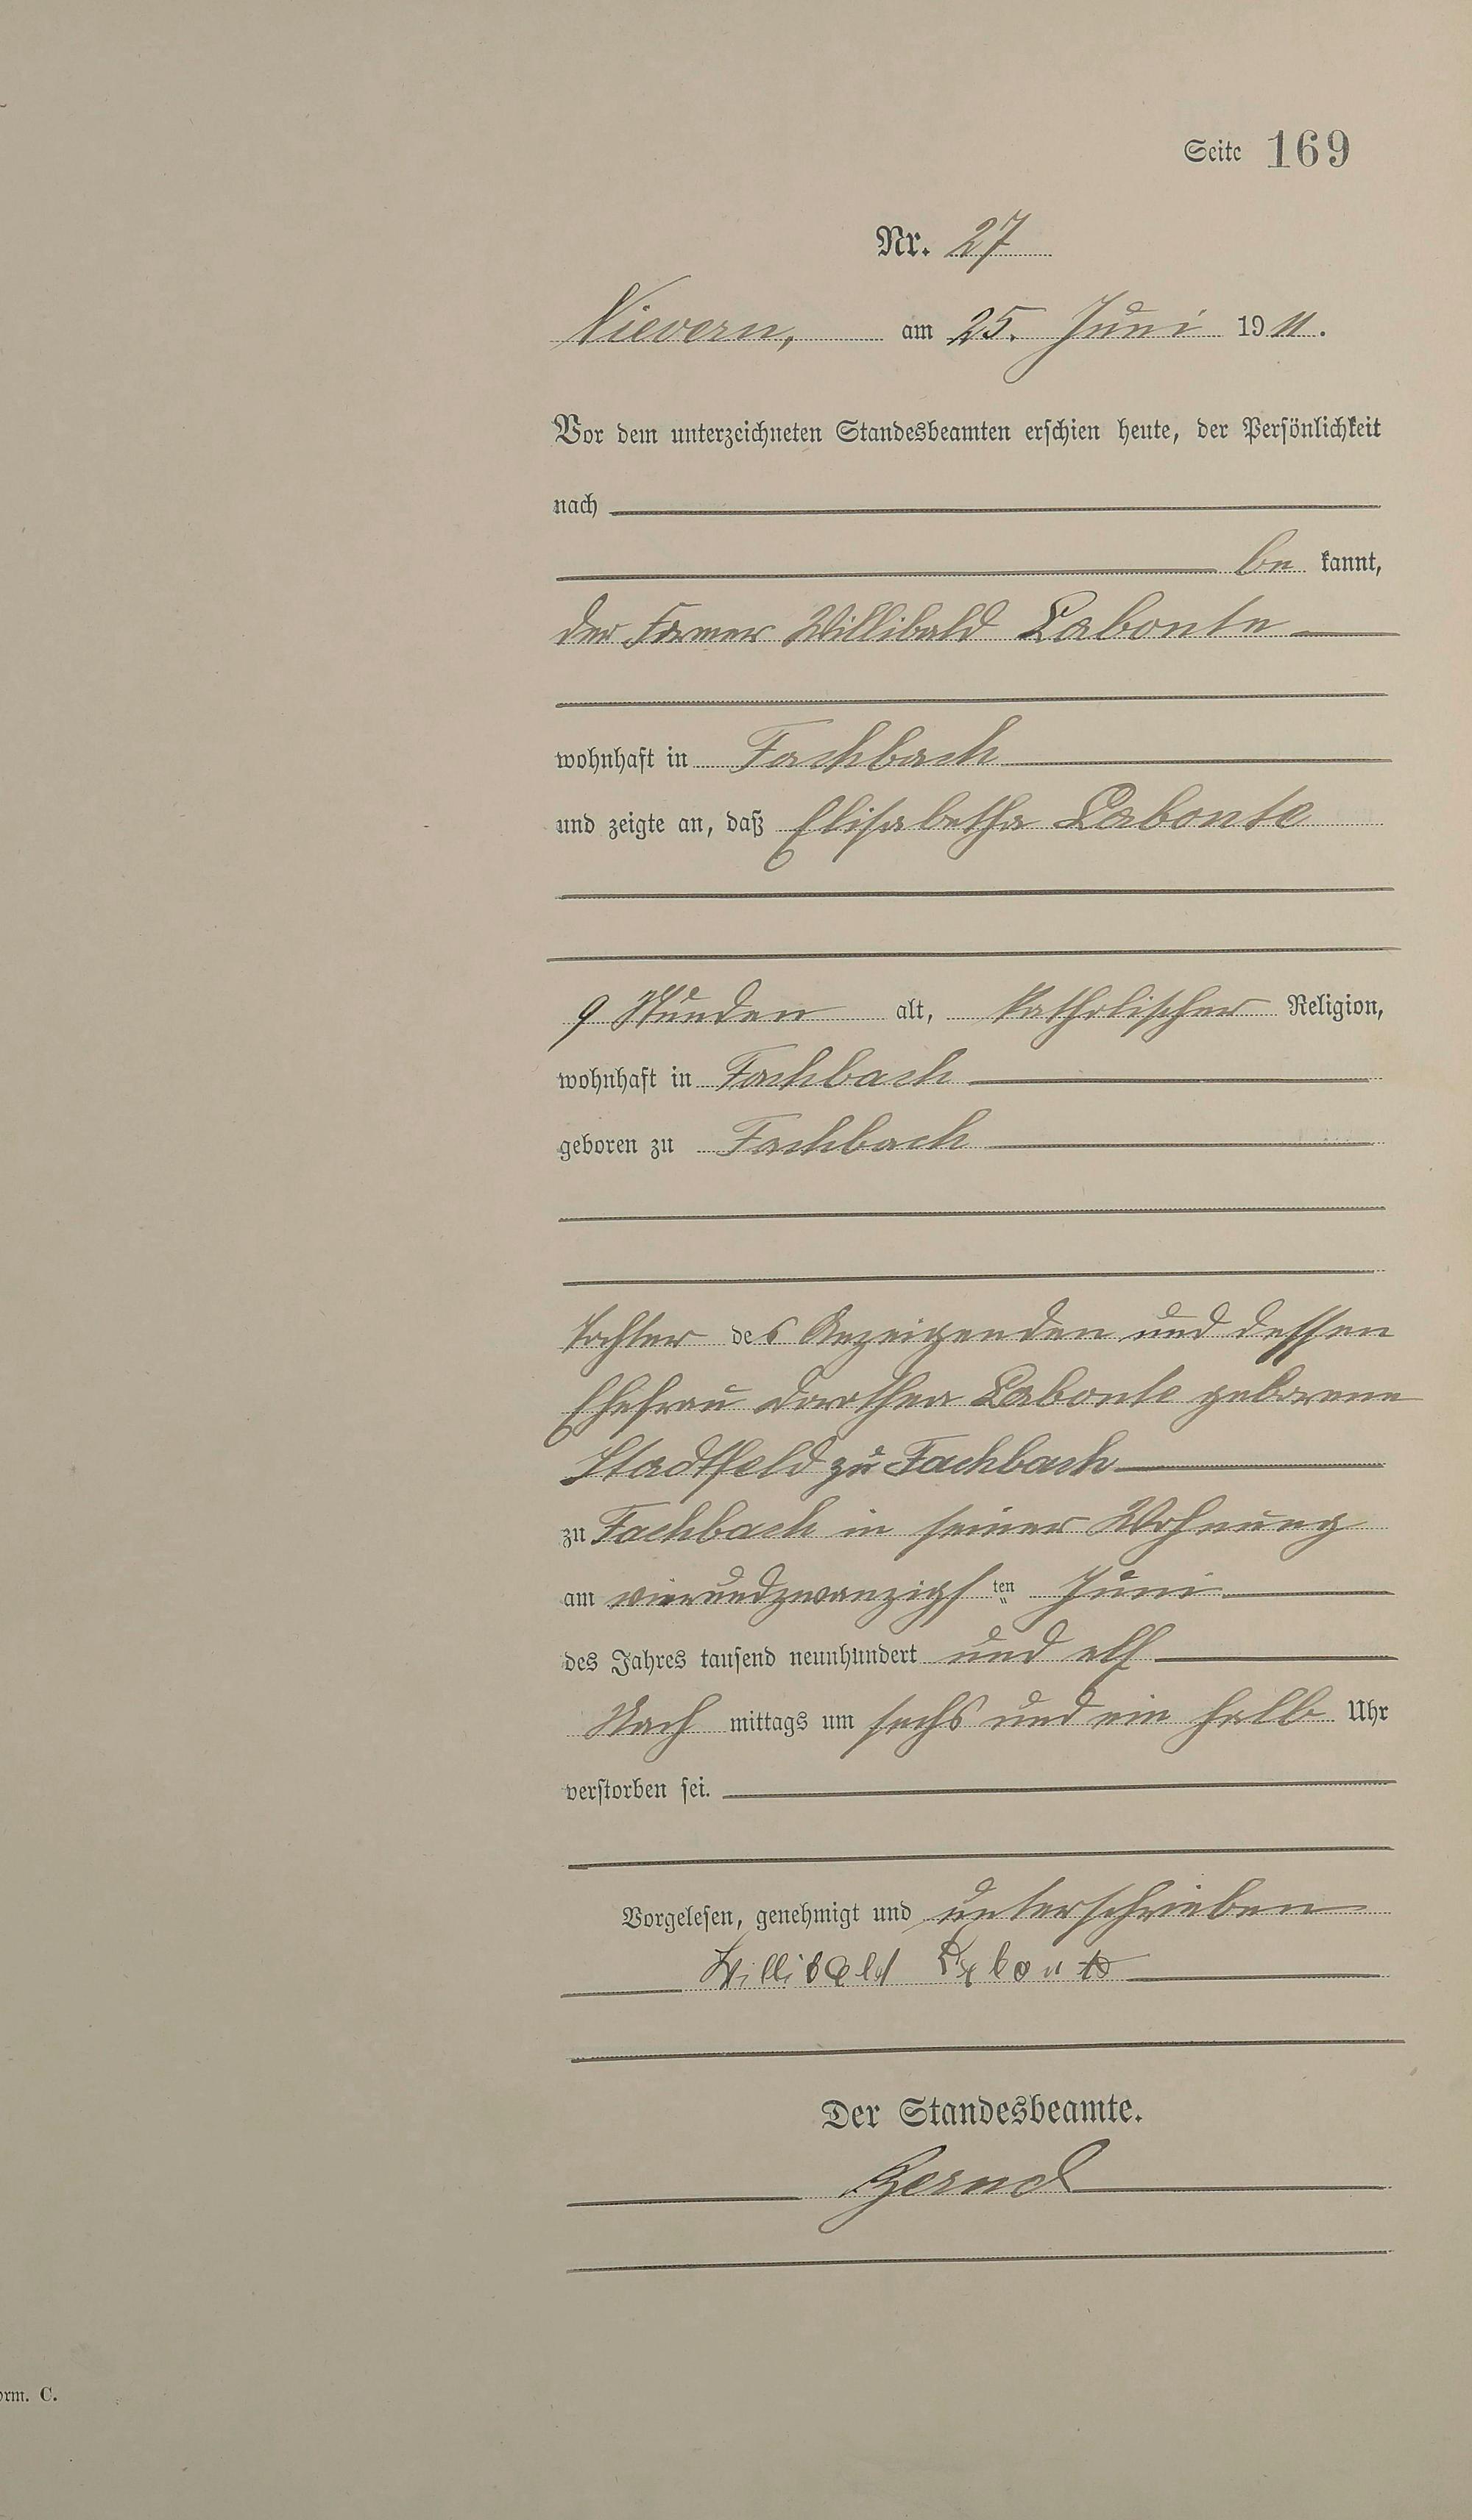 Seite 169
Nr. 27
Nievern, am 25. Juni 1911.
Vor dem unterzeichneten Standesbeamten erschien heute, der Persönlichkeit
nach
be kannt,
der Former Willibald Labonte
wohnhaft in Fachbach
und zeigte an, daß Elisabetha Labonte
9 Stunden alt, katholischer Religion,
wohnhaft in Fachbach
geboren zu Fachbach
Tochter des Anzeigenden und dessen
Ehefrau Dorothea Labonte geborene
Stadtfeld zu Fachbach
zu Fachbach in seiner Wohnung
am vierundzwanzigsten Juni
des Jahres tausend neunhundert und elf
Nach mittags um sechs und ein halb Uhr
verstorben sei.
Vorgelesen, genehmigt und unterschrieben
Willibald Labonte
Der Standesbeamte.
orm. C.